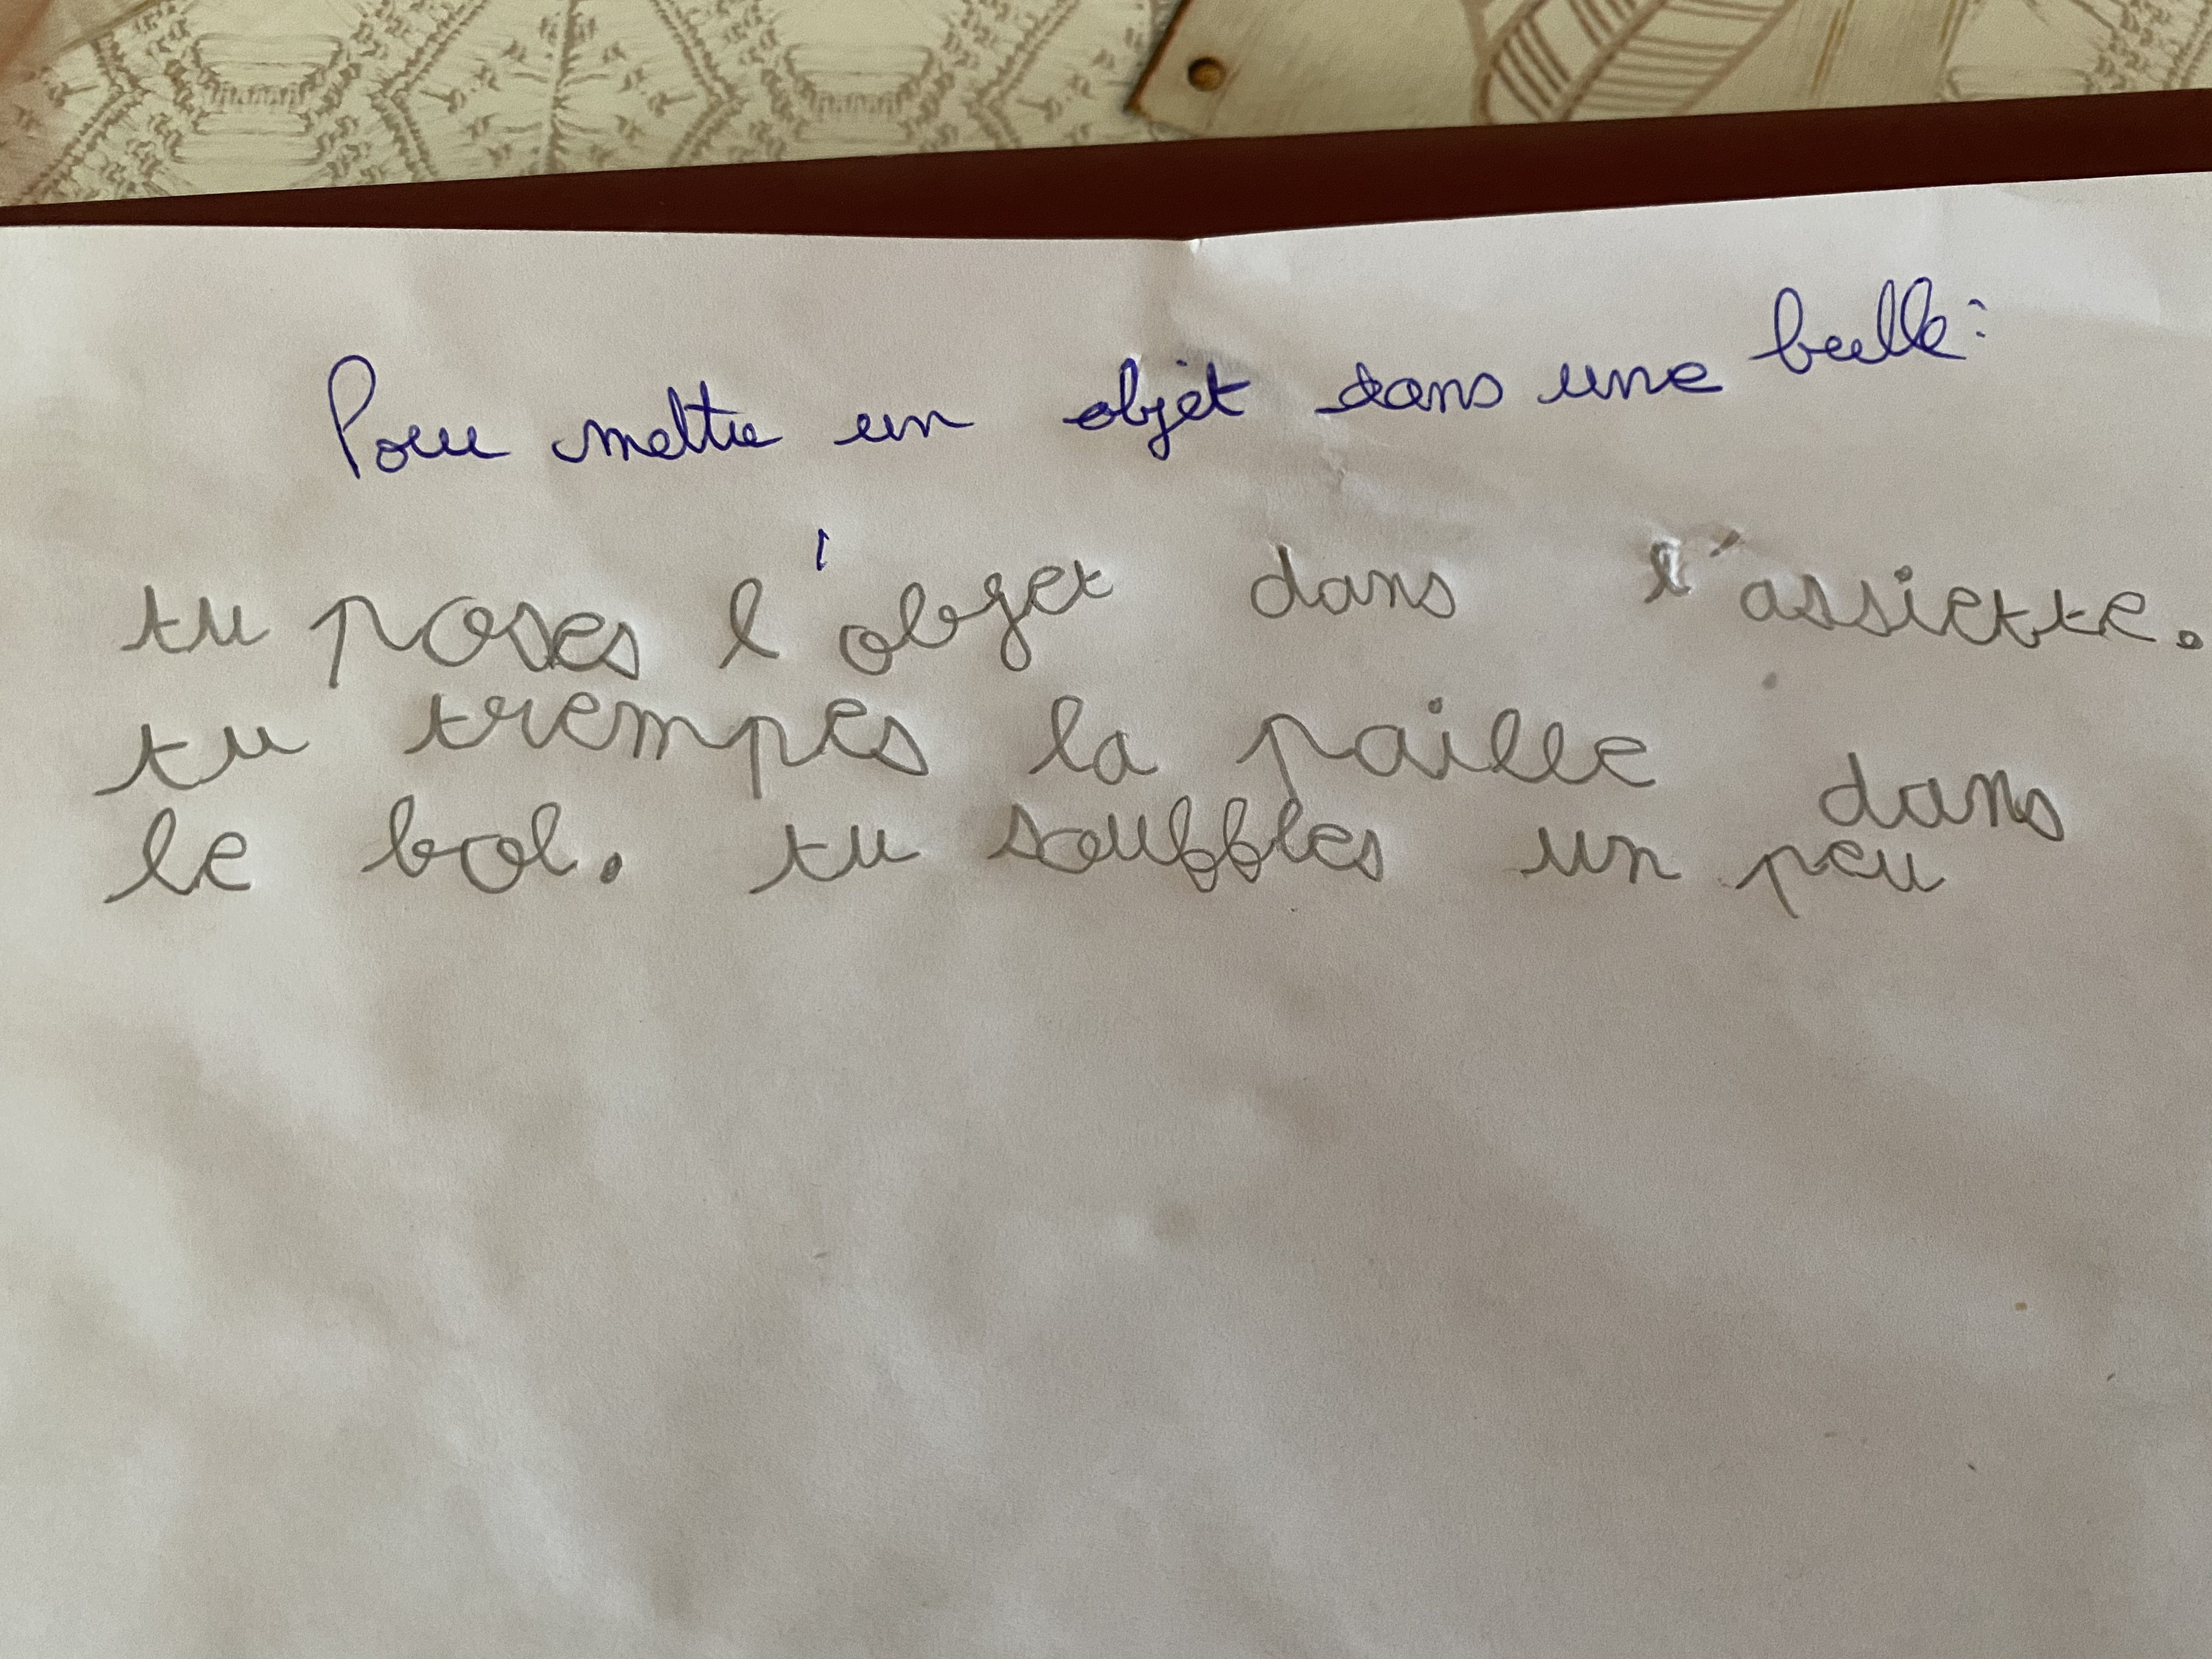 Pour mettre un objet dans une bulle :
tu poses l'objet dans l'assiette.
tu trempes la paille dans
le bol. tu souffles un peu